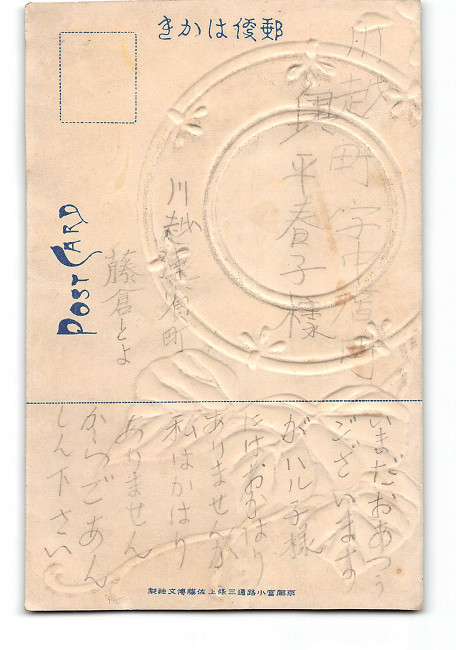 郵便はかき
POST CARD
川越町字中原町
奥平春子様
川越蓮雀町
藤倉とよ
いまだおあつう
ございます
がハル子様
にはおかはり
ありませんか
私はかはり
ありません
からごあん
しん下さい
京都富小路通三條上佐藤博文社製